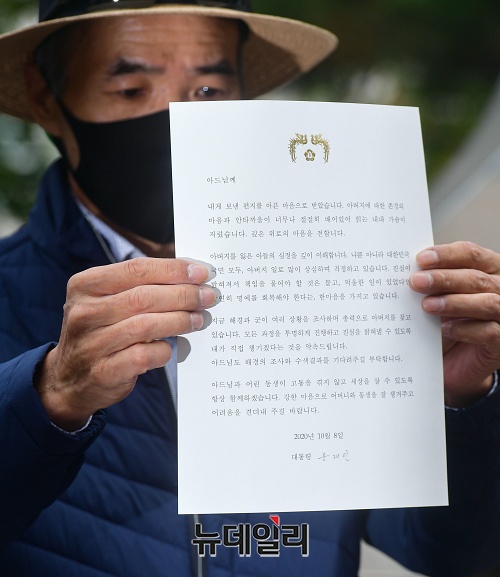 아드님께
내게 보낸 편지를 아픈 마음으로 받았습니다. 아버지에 대한 존경의
마음과 안타까움이 너무나 절절히 배어있어 읽는 내내 가슴이
저렸습니다. 깊은 위로의 마음을 전합니다.
아버지를 잃은 아들의 심정을 깊이 이해합니다. 나뿐 아니라 대한민국
국민 모두, 아버지 일로 많이 상심하며 걱정하고 있습니다. 진실이
밝혀져서 책임을 물어야 할 것은 묻고, 억울한 일이 있었다면
당연히 명예를 회복해야 한다는, 한마음을 가지고 있습니다.
지금 해경과 군이 여러 상황을 조사하며 총력으로 아버지를 찾고
있습니다. 모든 과정을 투명하게 진행하고 진실을 밝혀낼 수 있도록
내가 직접 챙기겠다는 것을 약속드립니다.
아드님도 해경의 조사와 수색결과를 기다려주길 부탁합니다.
아드님과 어린 동생이 고통을 겪지 않고 세상을 살 수 있도록
항상 함께하겠습니다. 강한 마음으로 어머니와 동생을 잘 챙겨주고
어려움을 견뎌내 주길 바랍니다.
2020년 10월 8일
대통령 문재인
뉴데일리